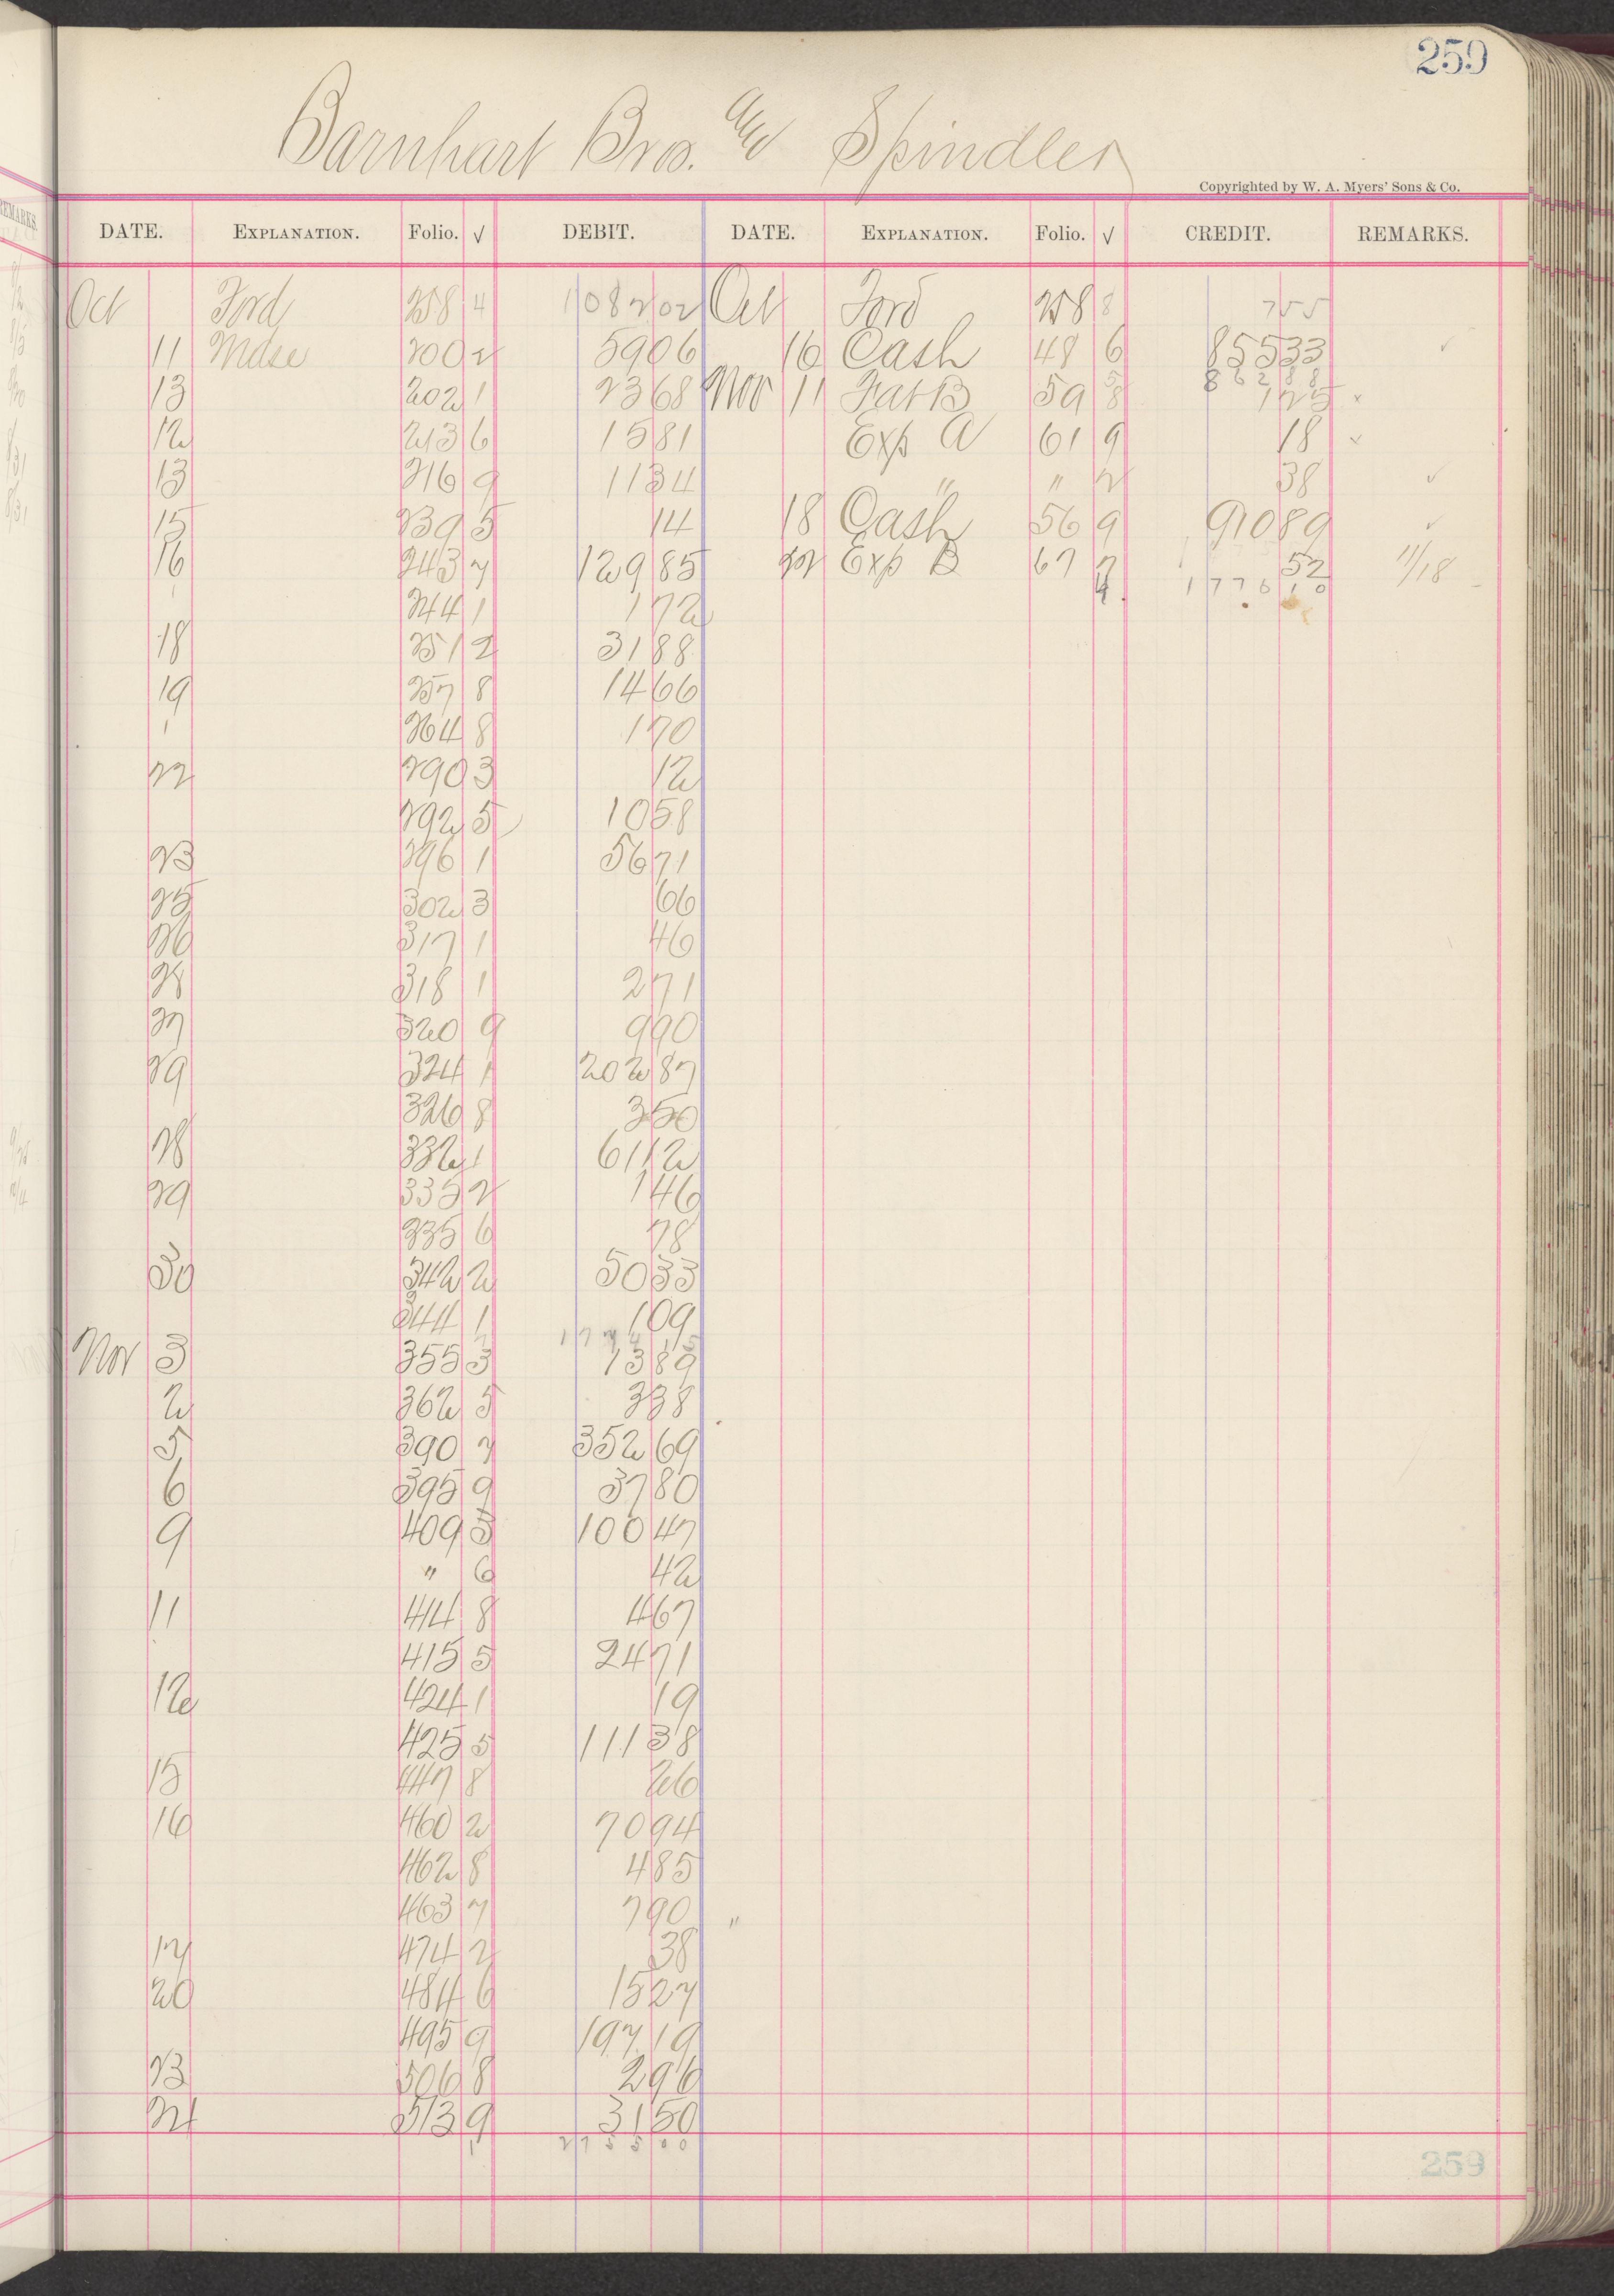 259
Barnhart Bros. and Spindler
Copyrighted by W. A. Myers' Sons & Co.
DATE. EXPLANATION. Folio. √ DEBIT. DATE. EXPLANATION. Folio. √ CREDIT. REMARKS.
Oct Ford 258 4 1082 02 Oct Ford 258 8 7 55
11 Mdse 200 2 59 06 16 Cash 48 6 855 33 ✓
862 88
13 202 1 23 68 Nov 11 59 8 1 25
12 213 6 15 81 Exp A 61 9 18
13 216 9 11 34 " " 2 38 ✓
15 239 5 14 18 Cash 56 9 910 89 ✓
16 243 7 129 85 22 Exp B 67 7 52 11/18
4 1776 10
244 1 1 72
18 251 2 31 88
19 257 8 14 66
264 8 1 70
22 290 3 12
292 5 10 58
23 296 1 56 71
25 302 3 66
26 317 1 46
28 318 1 2 71
27 320 9 9 90
29 324 1 202 87
326 8 3 50
28 332 1 61 12
29 335 2 1 46
335 6 78
30 342 2 50 33
344 1 1 09
Nov 3 355 3 13 89
2 362 5 3 38
5 390 7 352 69
6 395 9 37 80
9 409 3 100 47
" 6 42
11 414 8 4 67
415 5 24 71
12 424 1 19
425 5 111 38
15 447 8 26
16 460 2 70 94
462 8 4 85
463 7 7 90 "
17 474 2 38
20 484 6 15 27
495 9 197 19
23 506 8 2 96
24 513 9 31 50
2755 00
259